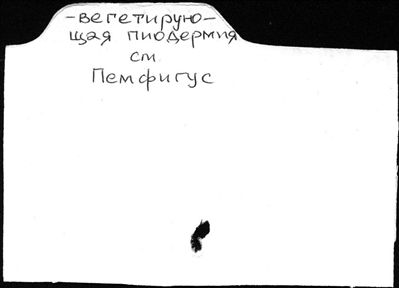 -вегетирую-
щая пиодермия
см
Пемфигус